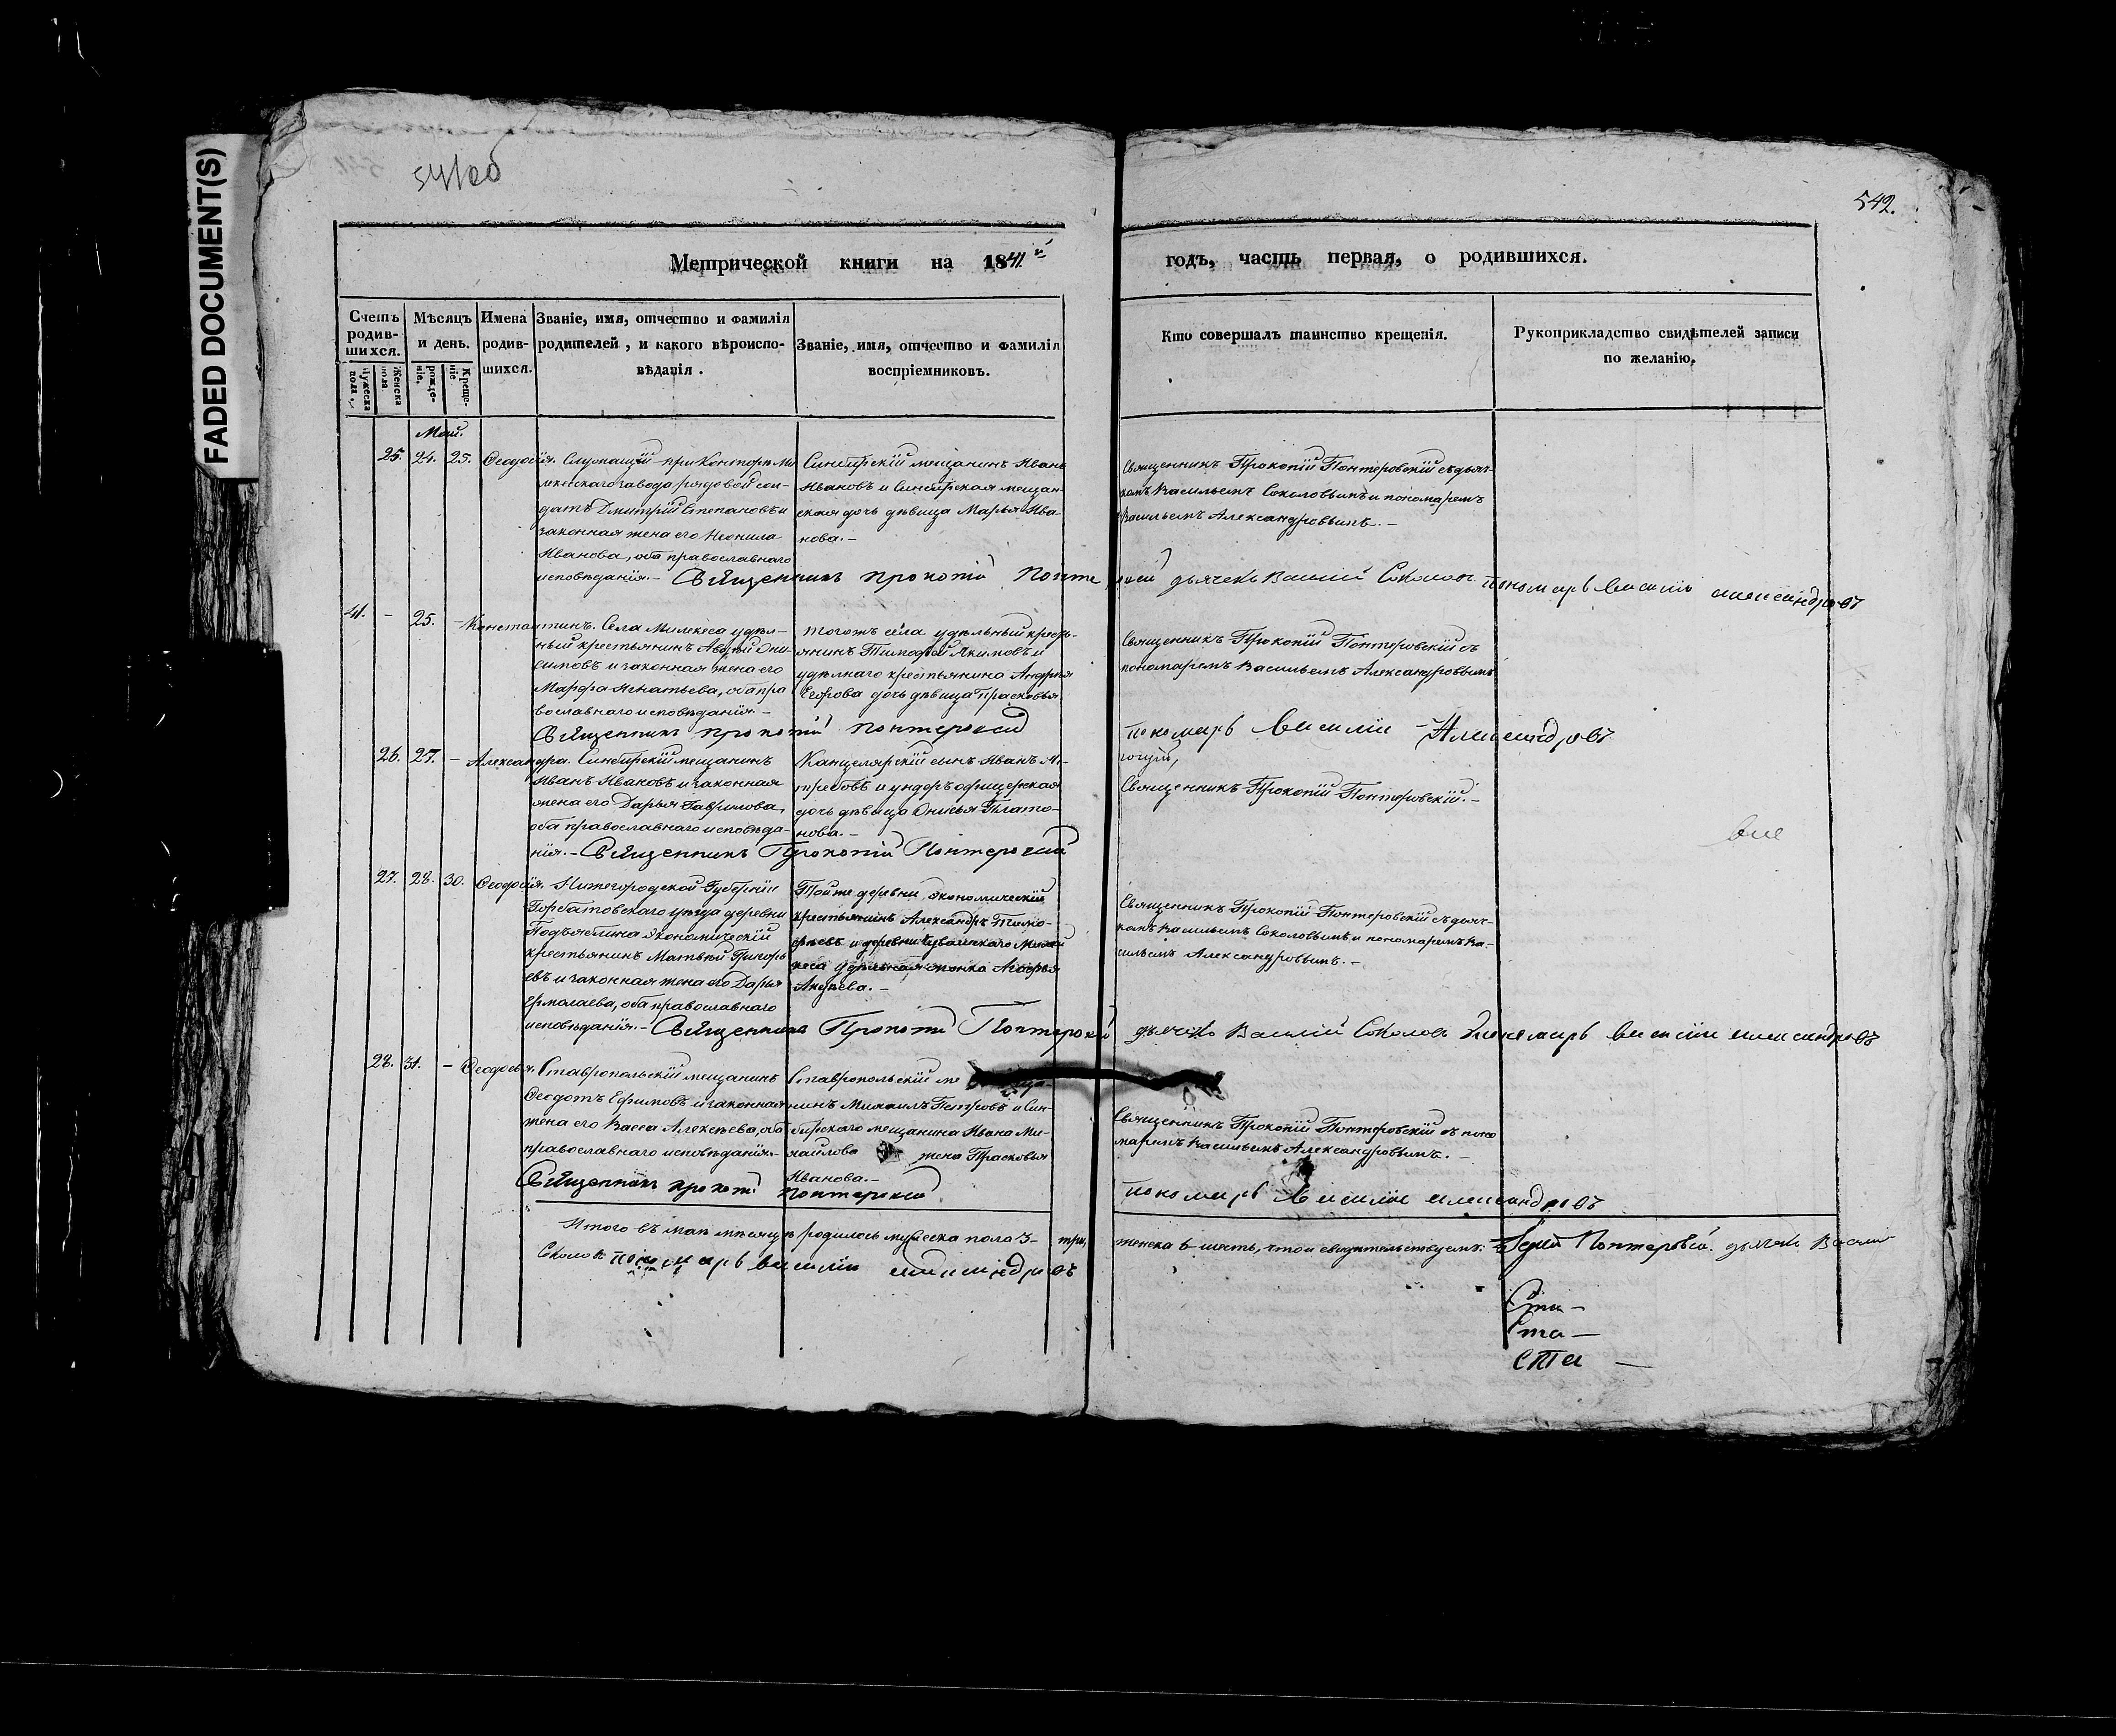 FADED DOCUMENT(S)
541об
542.
Метрической книги на 1841й
годъ, часть первая, о родившихся.
Счетъ родив-шихся.
Мужеска пола.
Женска пола
Мѣсяцъ и день.
рожде-ніе.
Креще-ніе
Имена родив-шихся.
Званіе, имя, отчество и фамилія
родителей, и какого вѣроиспо-
вѣданія.
Званіе, имя, отчество и фамилія
воспріемниковъ.
Кто совершалъ таинство крещенія.
Рукоприкладство свидѣтелей записи
по желанію.
Май.
25. 24. 25. Ѳеодосія.
Служащій при Конторѣ Ме
лекескаго завода рядовой сол-
датъ Дмитрій Степановъ и
законная жена его Неонила
Иванова, оба православнаго
исповѣданія.-
Синбирскій мещанинъ Иванъ
Ивановъ и Синбирская мещан-
ская дочь дѣвица Марья Ива-
нова.-
Священникъ Прокопій Понтеровскій съ дьяч-
комъ Васильемъ Соколовымъ и пономаремъ
Васильемъ Александровымъ.-
Священникъ Прокопій дьячекъ Василій Соколовъ пономарь Василій Александровъ
41. - 25. - Константинъ.
Села Мелекеса удѣл-
ный крестьянинъ Авдѣй Они-
симовъ и законная жена его
Марфа Игнатьева, оба пра
вославнаго исповѣданія.-
Тогожъ села удѣльный кресть-
янинъ Тимофей Якимовъ и
удѣлнаго крестьянина Андрея
дочь дѣвица Прасковья
Священникъ Прокопій Понтеровскій съ
пономаремъ Васильемъ Александровымъ
Священникъ Прокопій Понтеровскій
пономарь Василій Александровъ
26. 27. - Александра.
Синбирскій мещанинъ
Иванъ Ивановъ и законная
жена его Дарья Гаврилова,
оба православнаго исповѣда-
нія.-
Канцелярскій сынъ Иванъ
и ундеръ офицерская
дочь дѣвица Платο-
нова.-
Священникъ Прокопій Понтеровскій.-
Священникъ Прокопій Понтеровскій
27. 28. 30. Ѳеодосія.
Нижегородской Губерніи
Горбатовскаго уѣзда деревни
Подъяблина экономическій
крестьянинъ Матвей Григорь
евъ и законная жена его Дарья
Ермолаева, оба православнаго
исповѣданія.-
Тойже деревни экономическій
крестьянинъ Александръ Тимо-
феевъ и деревни Чувашскаго Меле
кеса удѣльная жонка
Авдѣева.-
Священникъ Прокопій Понтеровскій съ дьяч-
комъ Васильемъ Соколовымъ и пономаремъ Ва-
сильемъ Александровымъ.-
Священникъ Прокопій Понтеровскій дьячекъ Василій Соколовъ пономарь Василій Александровъ
28. 31. - Ѳеодосья.
Ставропольскій мещанинъ
Ѳеодотъ Ефимовъ и законная
жена его Васса Алексѣева, оба
православнаго исповѣданія.-
Ставропольскій ме
нинъ Михаилъ Петровъ и Син-
бирскаго мещанина Ивана Ми-
хайлова жена Прасковья
Иванова.-
Священникъ Прокопій Понтеровскій съ поно
маремъ Васильемъ Александровымъ.-
Священникъ Прокопій Понтеровскій
пономарь Василій Александровъ
Итого въ маѣ мѣсяцѣ родилось мужеска пола 3- три,
женска 6 шесть, въ томъ свидѣтельствуемъ: Іерей Понтеровскій. дьячекъ Васили
Соколовъ пономарь василіи александровъ
Ста-
Ста-
Ста-